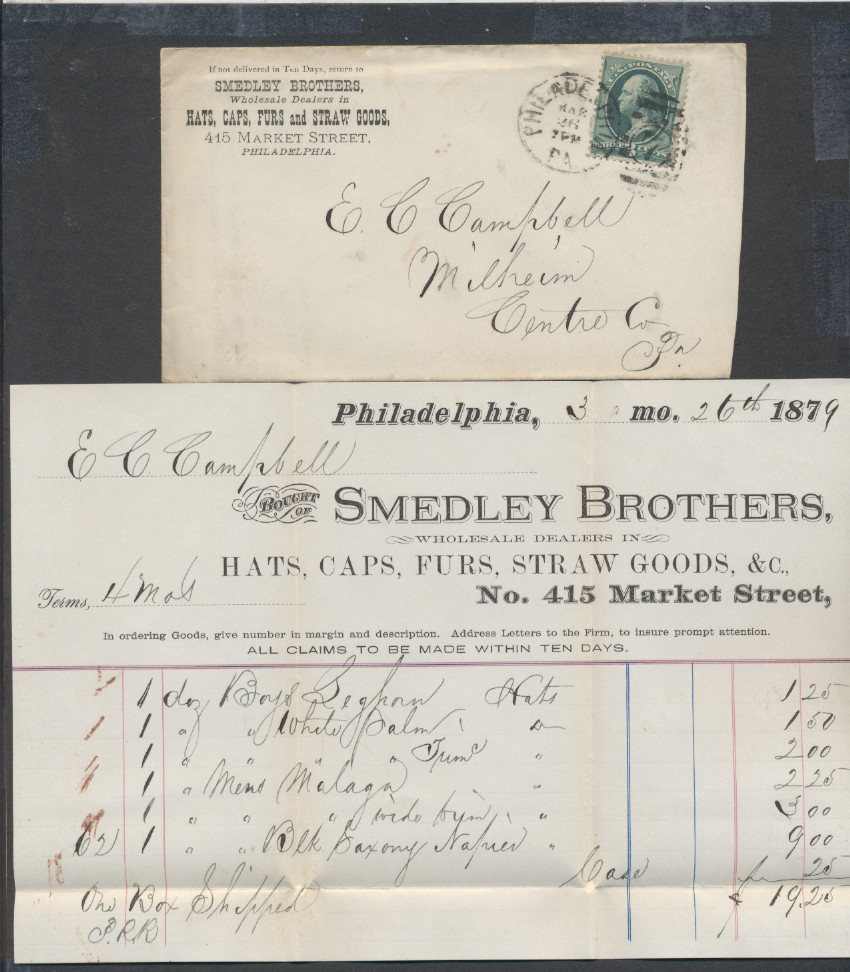 If not delivered in Ten Days, return to
SMEDLEY BROTHERS,
Wholesale Dealers in
HATS, CAPS, FURS and STRAW GOODS,
415 MARKET STREET,
PHILADELPHIA.
PHILADE
MAR
26
PM
PA
U.S. POSTAGE
E. C. Campbell
Milheim
Centre Co
Pa
Philadelphia, 3 mo. 26th 1879
E C Campbell
BOUGHT OF SMEDLEY BROTHERS,
WHOLESALE DEALERS IN
HATS, CAPS, FURS, STRAW GOODS, &C.,
Terms, 4 Mos No. 415 Market Street,
In ordering Goods, give number in margin and description. Address Letters to the Firm, to insure prompt attention.
ALL CLAIMS TO BE MADE WITHIN TEN DAYS.
1 doz Boys Leghorn Hats 1 25
1 " " White Palm " 1 50
1 " " " " Trimd " 2 00
1 " Mens Malaga " 2 25
1 " " " wide brim " 3 00
62 1 " " Blk Saxony Napied " 9 00
Case 25
One Box Shipped $ 19.25
P.R.R